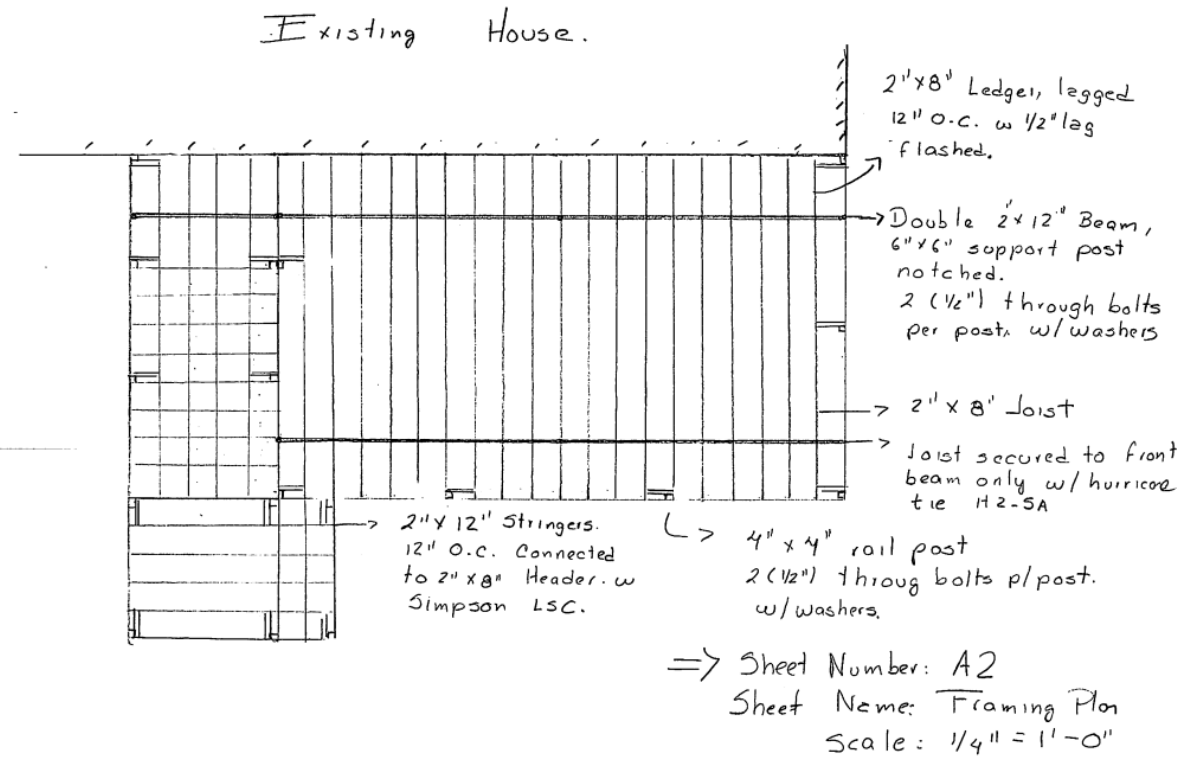 Existing House.
2"x8" Ledger, lagged
12" O.C. w 1/2" lag
flashed.
Double 2"x12" Beam,
6"x6" support post
notched.
2 (1/2") through bolts
per post. w/washers
2" x 8" Joist
Joist secured to front
beam only w/ hurricae
tie H2-5A
2"x12" Stringers.
12" O.C. Connected
to 2"x8" Header. w
Simpson LSC.
4" x 4" rail post
2 (1/2") throug bolts p/post.
w/washers.
=> Sheet Number: A2
Sheet Name: Framing Plan
Scale: 1/4" = 1'-0"